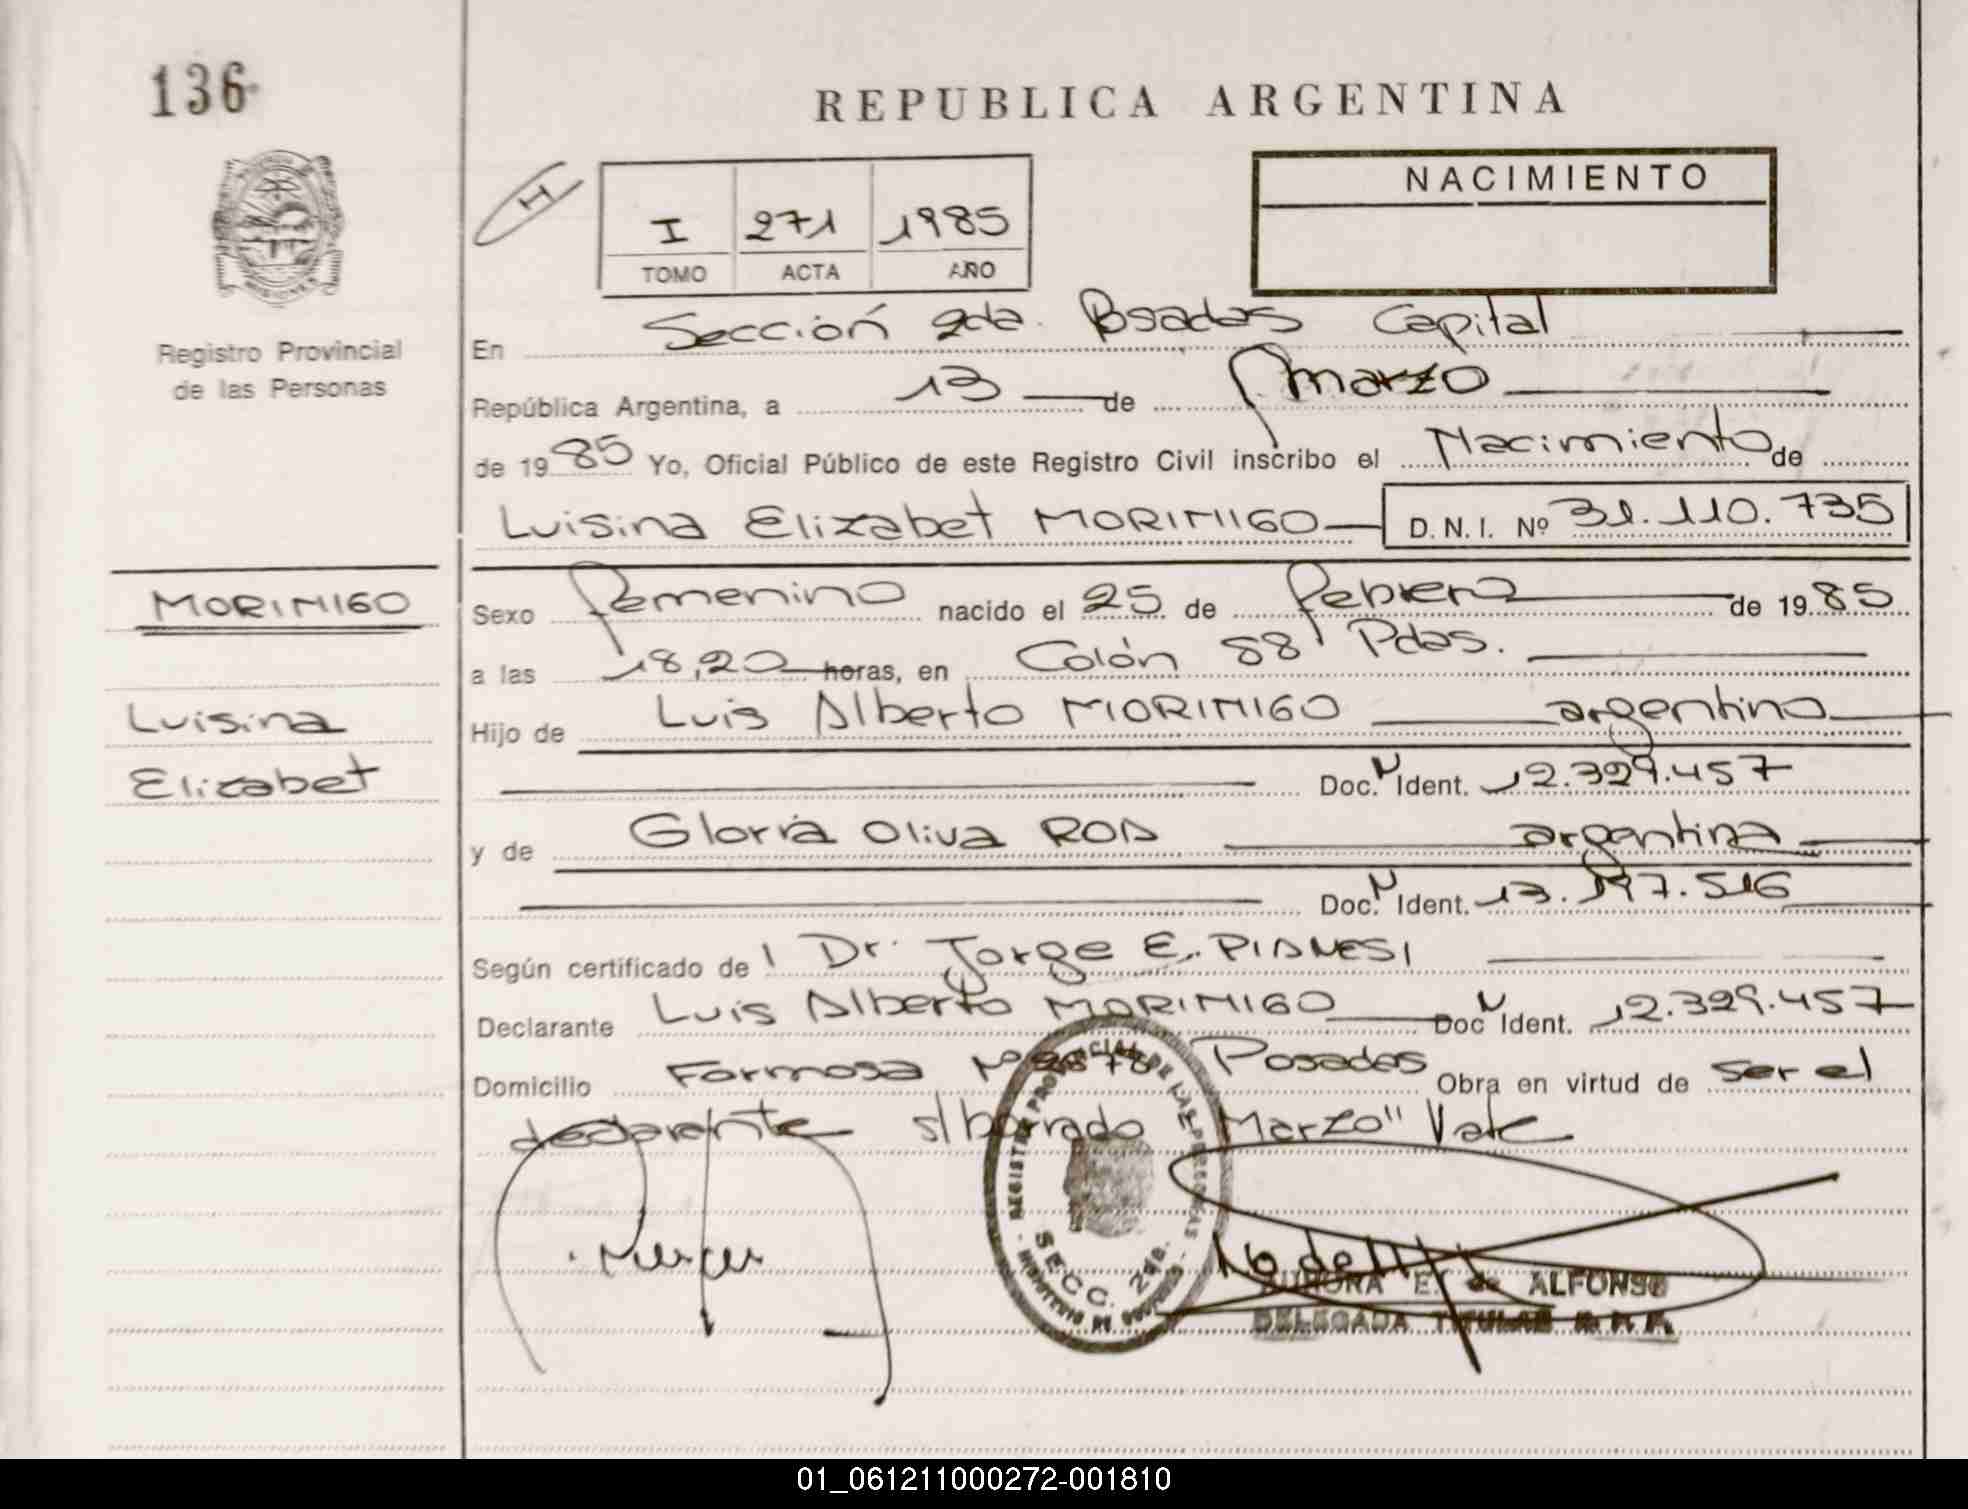 136
REPUBLICA ARGENTINA
NACIMIENTO
H
I 271 1985
TOMO ACTA AÑO
MISIONES
Registro Provincial
de las Personas
En Sección 2da. Posadas Capital
República Argentina, a 13 de marzo
de 1985 Yo, Oficial Público de este Registro Civil inscribo el Nacimiento de
Luisina Elizabet MORINIGO D.N.I. Nº 31.110.735
MORINIGO
Luisina
Elizabet
Sexo femenino nacido el 25 de febrero de 1985
a las 18,20 horas, en Colón 88 Pdas.
Hijo de Luis Alberto MORINIGO argentino
Doc. N Ident. 12.329.457
y de Gloria Oliva ROA argentina
Doc. N Ident. 13.197.516
Según certificado de l Dr. Jorge E. PIANESI
Declarante Luis Alberto MORINIGO Doc N Ident. 12.329.457
Domicilio Formosa Nº Posadas Obra en virtud de ser el
declarante s/borrado Marzo" Vale
REGISTRO PROVINCIAL DE LAS PERSONAS
SECC. 2da.
AURORA E. de ALFONSO
DELEGADA TITULAR R. P. P.
01_061211000272-001810